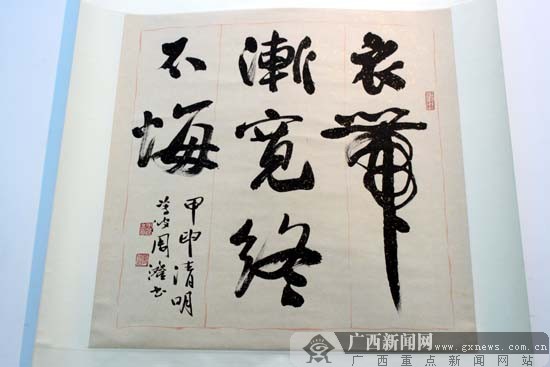 衣帶
漸寬終
不悔
甲申清明
周
书
广西新闻网
www.gxnews.com.cn
广西重点新闻网站